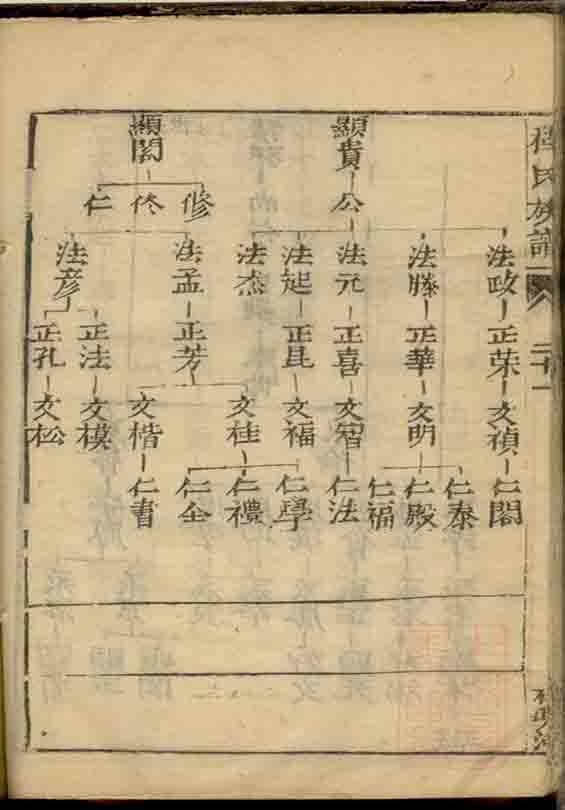 氏族譜 二十一
法政 正荣 文禎 仁閣
仁泰
法滕 正華 文明 仁殿
仁福
顯貴 公 法元 正喜 文智 仁法
法起 正昆 文福 仁學
法杰 文桂 仁禮
修 法孟 正芳 仁全
顯閣 佟 文楷 仁書
仁 正法 文模
法彦
正孔 文松